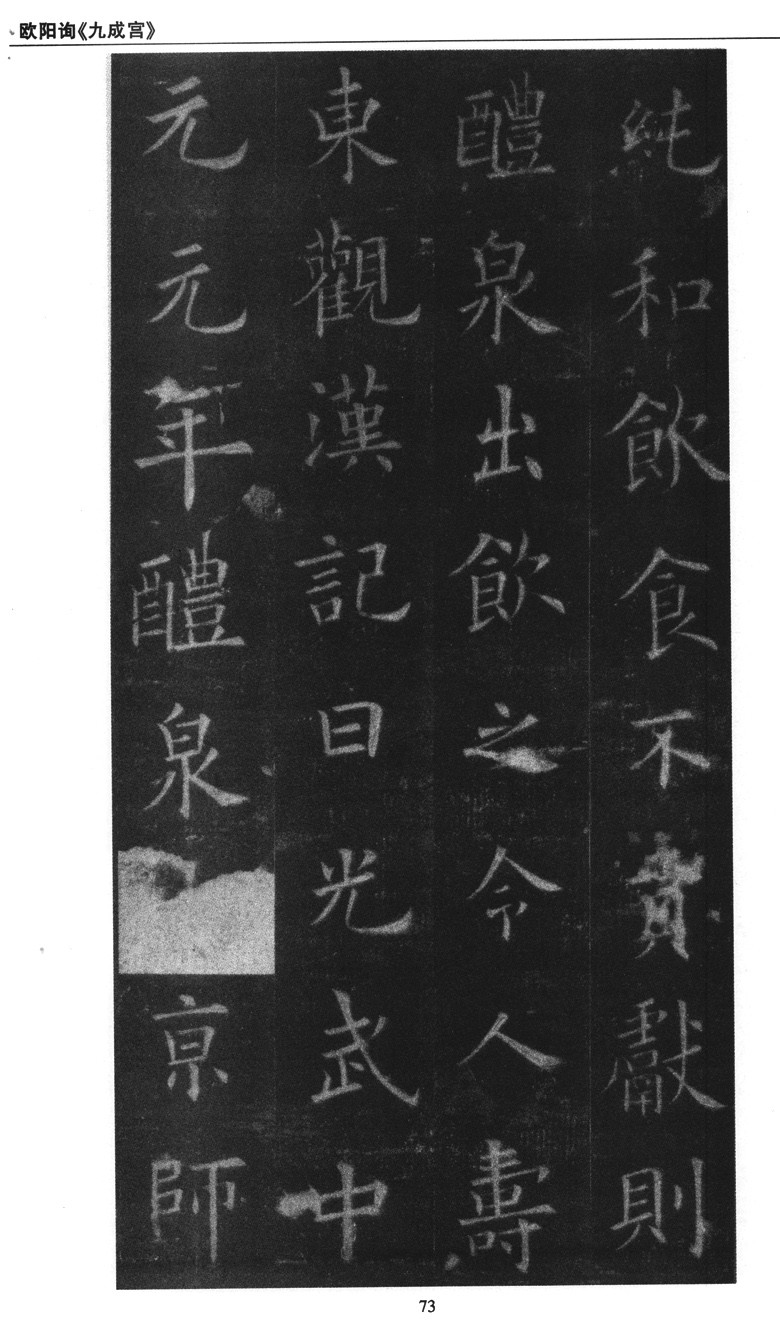 欧阳询《九成宫》
純和飲食不貢獻則
醴泉出飲之令人壽
東觀漢記曰光武中
元元年醴泉京師
73